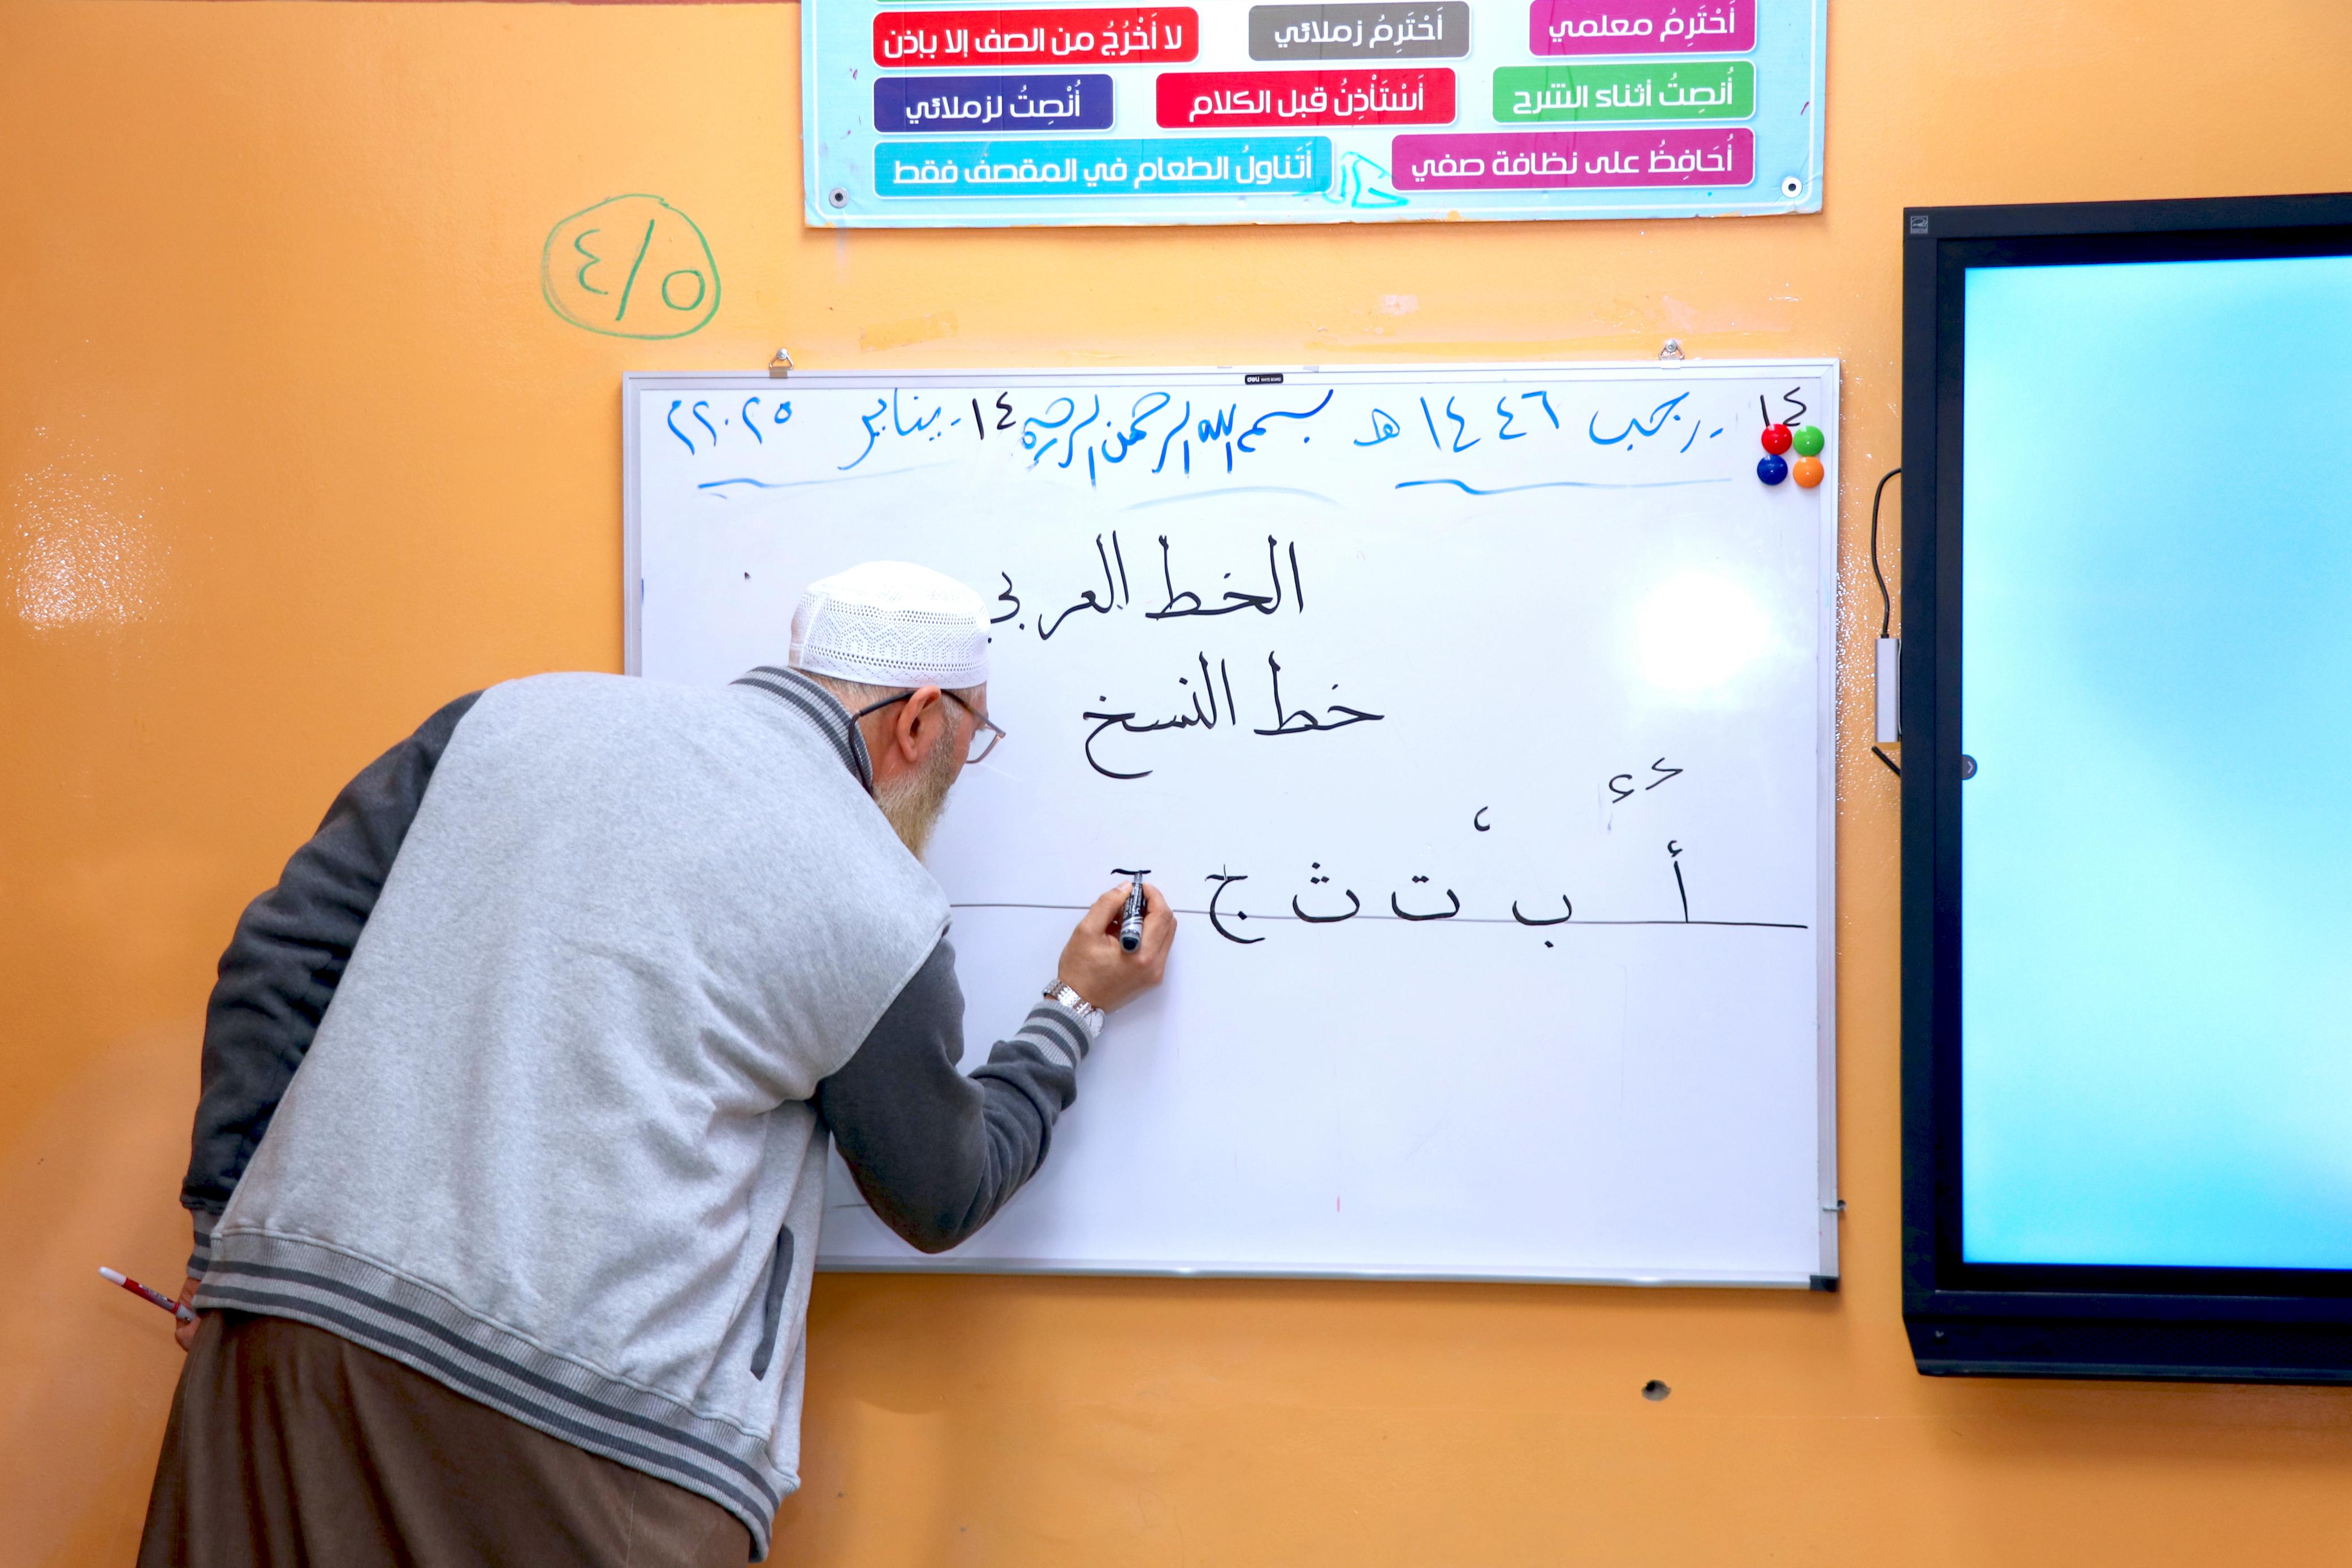 أَحْتَرِمُ معلمي أَحْتَرِمُ زملائي لا أَخْرُجُ من الصف إلا بإذن
أُنصِتُ أثناء الشرح أَسْتَأْذِنُ قبل الكلام أُنْصِتُ لزملائي
أُحَافِظُ على نظافة صفي أَتَناولُ الطعام في المقصف فقط
٤/٥
deli WHITE BOARD
١٤ - رجب ١٤٤٦ هـ بسم الله الرحمن الرحيم ١٤ - يناير ٢٠٢٥ م
الخط العربي
خط النسخ
أ ب ت ث ج